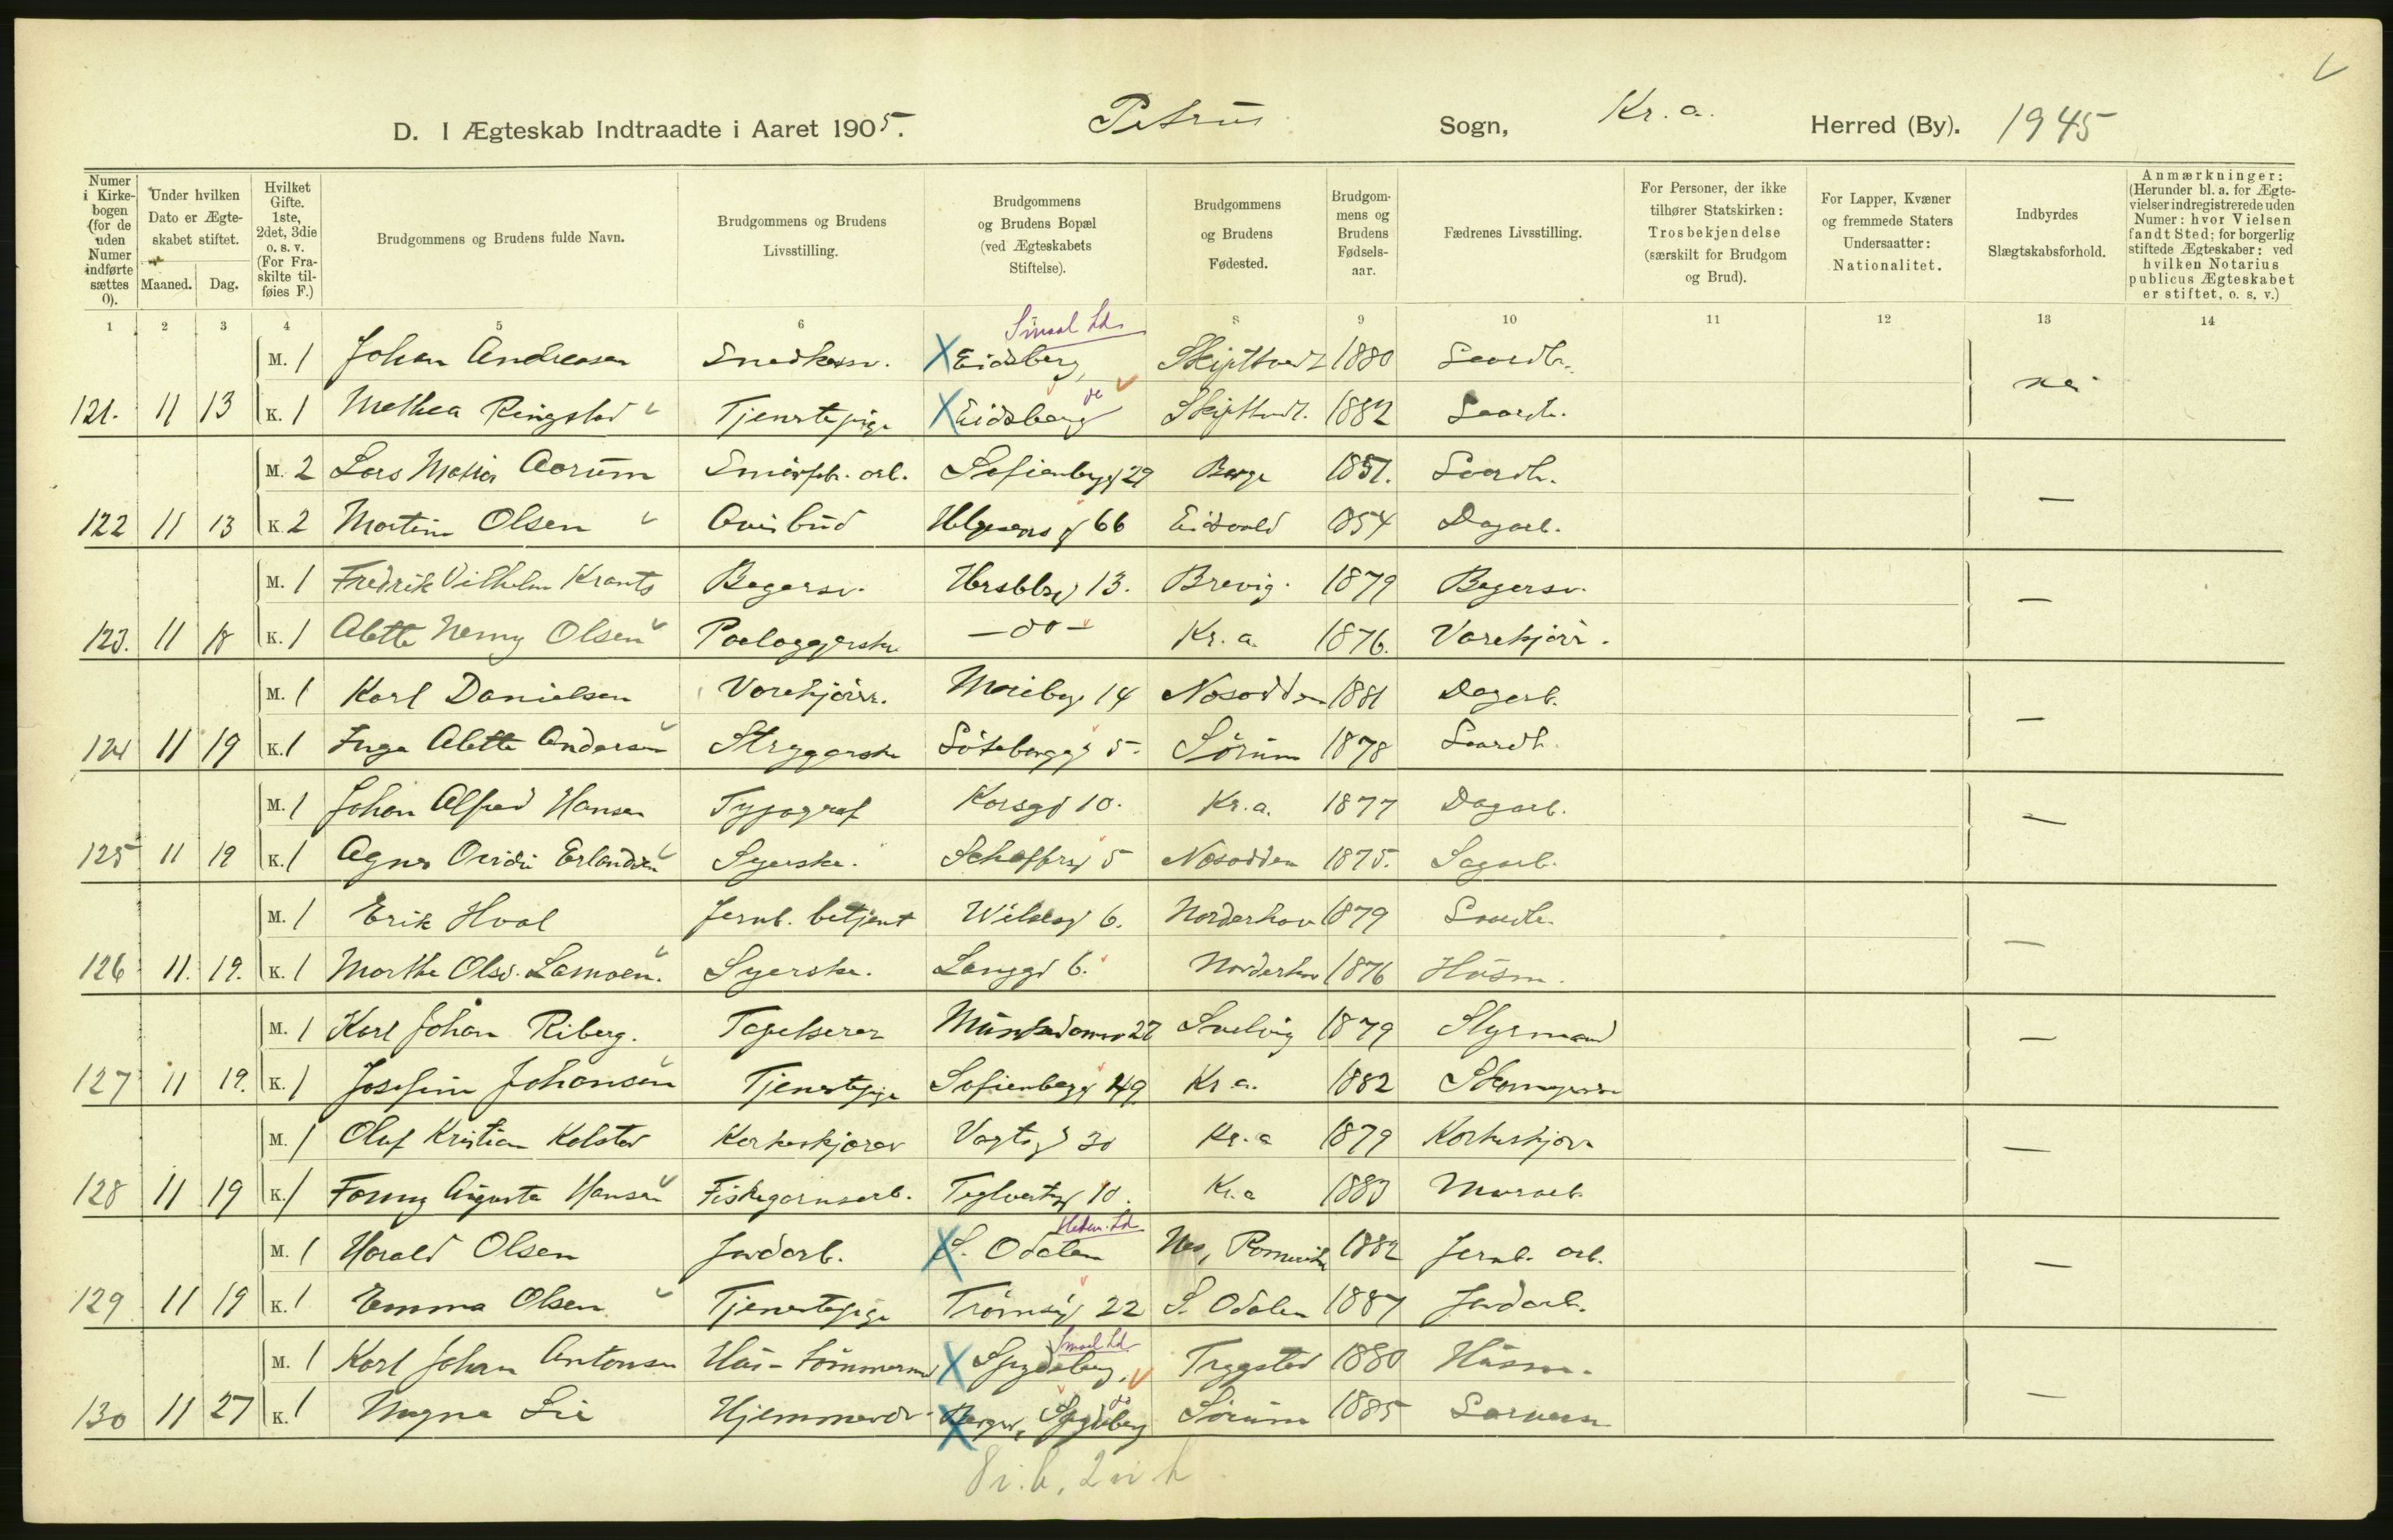 D. I Ægteskab Indtraadte i Aaret 1905. Petrus Sogn, Kr. a. Herred (By). 1945
Numer i Kirkebogen (for de uden Numer indførte sættes 0).
Under hvilken Dato er Ægteskabet stiftet.
Maaned. Dag.
Hvilket Gifte. 1ste, 2det, 3die o. s. v. (For Fraskilte tilføies F.)
Brudgommens og Brudens fulde Navn.
Brudgommens og Brudens Livsstilling.
Brudgommens og Brudens Bopæl (ved Ægteskabets Stiftelse).
Brudgommens og Brudens Fødested.
Brudgommens og Brudens Fødselsaar.
Fædrenes Livsstilling.
For Personer, der ikke tilhører Statskirken: Trosbekjendelse (særskilt for Brudgom og Brud).
For Lapper, Kvæner og fremmede Staters Undersaatter: Nationalitet.
Indbyrdes Slægtskabsforhold.
Anmærkninger: (Herunder bl. a. for Ægtevielser indregistrerede uden Numer: hvor Vielsen fandt Sted; for borgerlig stiftede Ægteskaber: ved hvilken Notarius publicus Ægteskabet er stiftet, o. s. v.)
1 2 3 4 5 6 8 9 10 11 12 13 14
Smaal Ld.
M. 1 Johan Andreasen Snedkersv. Eidsberg, Skiptvedt 1880 Gaardb.
121. 11 13 K. 1 Mathea Ringstad Tjenestepige Eidsberg do Skiptvedt. 1882 Gaardb. nei
M. 2 Lars Aarum Smørfabr. arb. Sofienbergg 29 Borge 1851. Gaardb.
122 11 13 K. 2 Martine Olsen Avisbud Helgesens g 66 Eidsvold 1854 Dagarb. —
M. 1 Fredrik Vilhelm Krantz Bagersv. Herslebsg 13. Brevig. 1879 Bagersv.
123. 11 18 K. 1 Alette Olsen —do— Kr. a. 1876. Varekjør. —
M. 1 Karl Danielsen Varekjører. Maribog 14 Nesodden 1881 Dagarb.
124 11 19 K. 1 Inga Alette Andersen Strygerske Göteborgg 5. Sørum 1878 Gaardb. —
M. 1 Johan Alfred Hansen Typograf Korsgd 10. Kr. a. 1877 Dagarb.
125 11 19 K. 1 Agnes Erlandsen Syerske. Schafftsg 5 Nesodden 1875. Sagarb. —
M. 1 Erik Hval Jernb. betjent Wilsesg 6. Norderhov 1879 Gaardb.
126 11. 19. K. 1 Marthe Olsd. Lamoen. Syerske. Langgd 6. Norderhov 1876 Husm. —
M. 1 Karl Johan Riberg. Tapetserer 27 Svelvig 1879 Styrmand
127 11 19. K. 1 Josefine Johansen Tjenestepige Sofienbergg 49. Kr a. 1882 Skomagersv —
M. 1 Oluf Kristian Kolstad Vogtsgd 30 Kr. a 1879
128 11 19 K. 1 Fanny Augusta Hansen Fiskegarnsarb. Teglverksg 10. Kr. a 1883 Murarb. —
Hedem. Ld
M. 1 Harald Olsen Jordarb. S. Odalen Nes, Romerike 1882 Jernb. arb.
129 11 19 K. 1 Emma Olsen Tjenestepige Tromsøg 22 S. Odalen 1887 Jordarb. —
Smaal Ld
M. 1 Karl Johan Antonsen Hus-tømmermd Spydeberg. Trygstad 1880 Husm.
130 11 27 K. 1 Magna Lie Hjemmeværd. Berger, Spydeberg do Sørum 1885 —
8 i. b, 2 i h